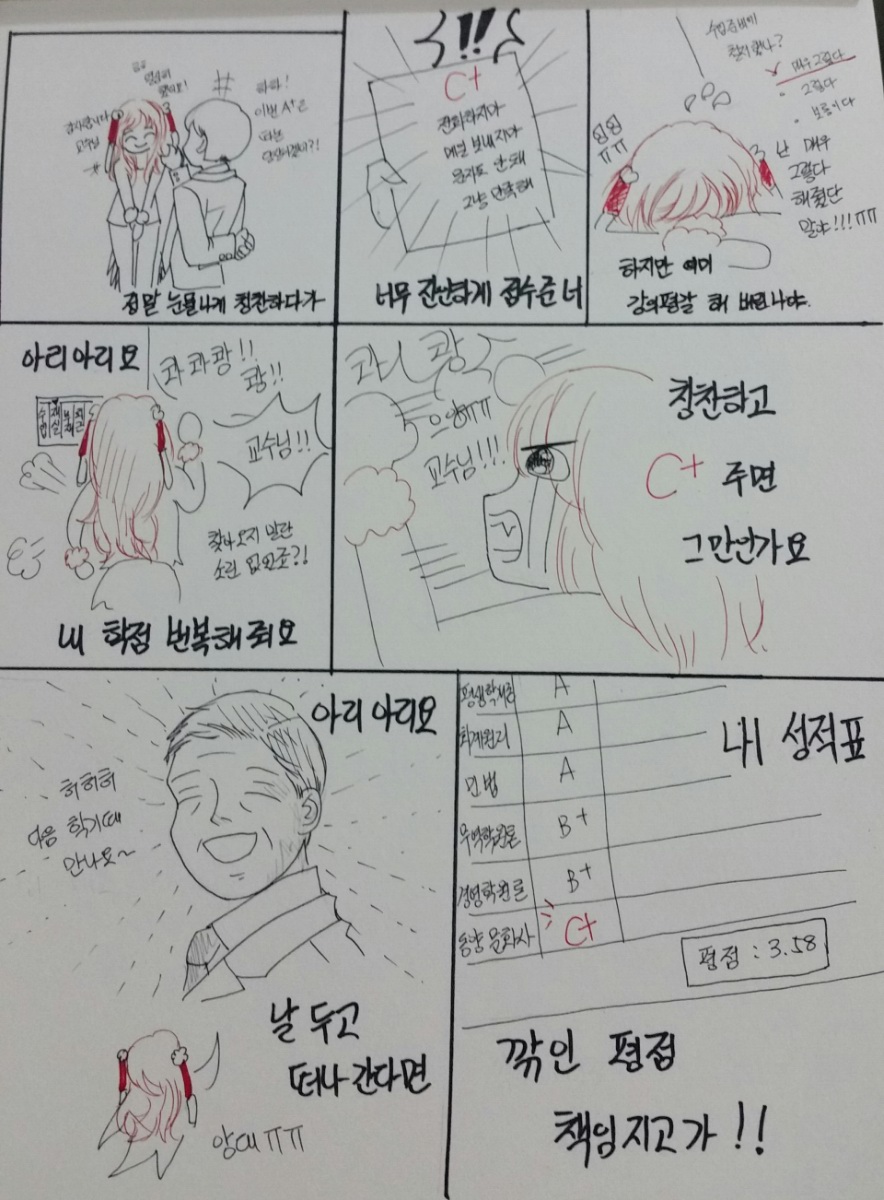 감사합니다
교수님
하하!
이번 A+은
정말 눈물나게 칭찬하다가
!!
C+
전화하지마
메일 보내지마
문자도 안돼
그냥 만족해
너무 잔난하게 점수준 너
수업준비가
철저했나?
매우그렇다
그렇다
보통이다
ㅠㅠ
난 매우
그렇다
해줬단
말야!!!ㅠㅠ
하지만 이미
강의평갈 해 버린나야.
아리아리요
콰콰쾅!!
쾅!!
교수님!!
찾아오지 말란
소린 없었죠?!
내 학점 번복해줘요
콰니쾅
으앙ㅠㅠ
교수님!!!
칭찬하고
C+ 주면
그만인가요
아리아리요
허허허
다음 학기때
만나요~
날 두고
떠나간다면
앙대ㅠㅠ
내 성적표
A
회계원리 A
민법 A
무역학원론 B+
경영학원론 B+
동양문화사 C+
평점 : 3.58
깎인 평점
책임지고가!!